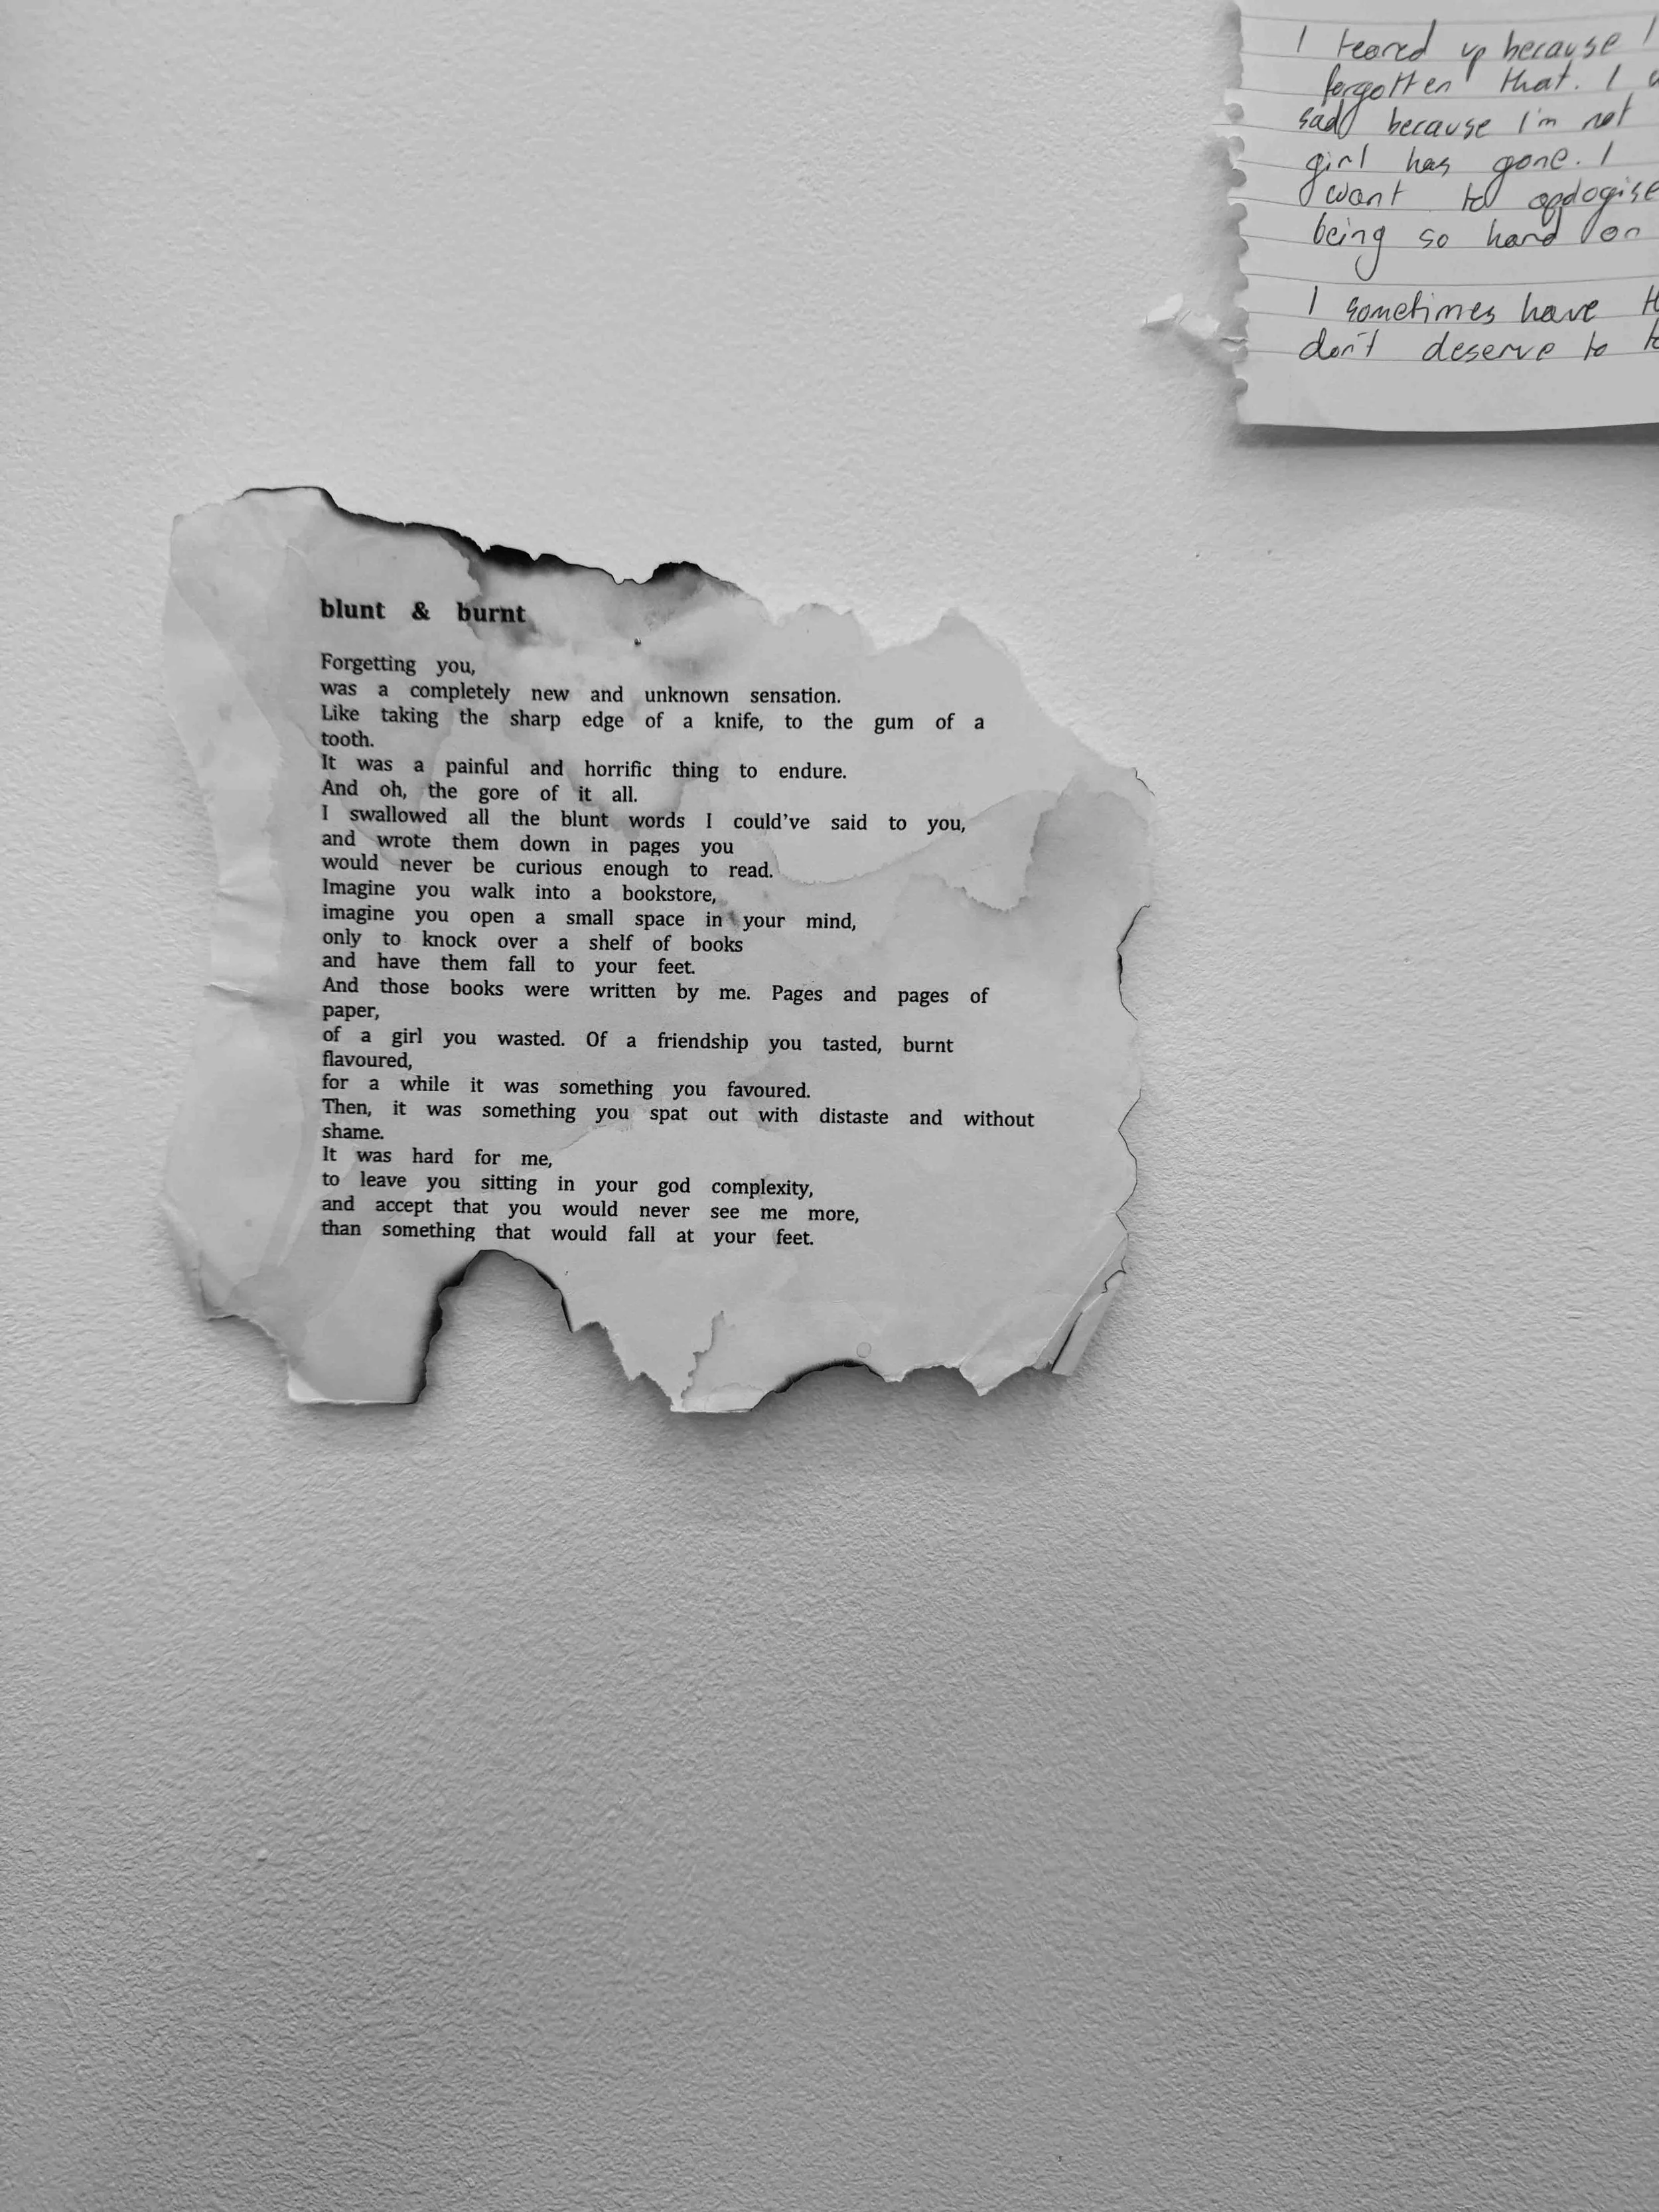 I teared up because I
forgotten that. I
sad because I'm not
girl has gone. I
want to apologise
being so hard on
I sometimes have
don't deserve to
blunt & burnt
Forgetting you,
was a completely new and unknown sensation.
Like taking the sharp edge of a knife, to the gum of a
tooth.
It was a painful and horrific thing to endure.
And oh, the gore of it all.
I swallowed all the blunt words I could've said to you,
and wrote them down in pages you
would never be curious enough to read.
Imagine you walk into a bookstore,
imagine you open a small space in your mind,
only to knock over a shelf of books
and have them fall to your feet.
And those books were written by me. Pages and pages of
paper,
of a girl you wasted. Of a friendship you tasted, burnt
flavoured,
for a while it was something you favoured.
Then, it was something you spat out with distaste and without
shame.
It was hard for me,
to leave you sitting in your god complexity,
and accept that you would never see me more,
than something that would fall at your feet.